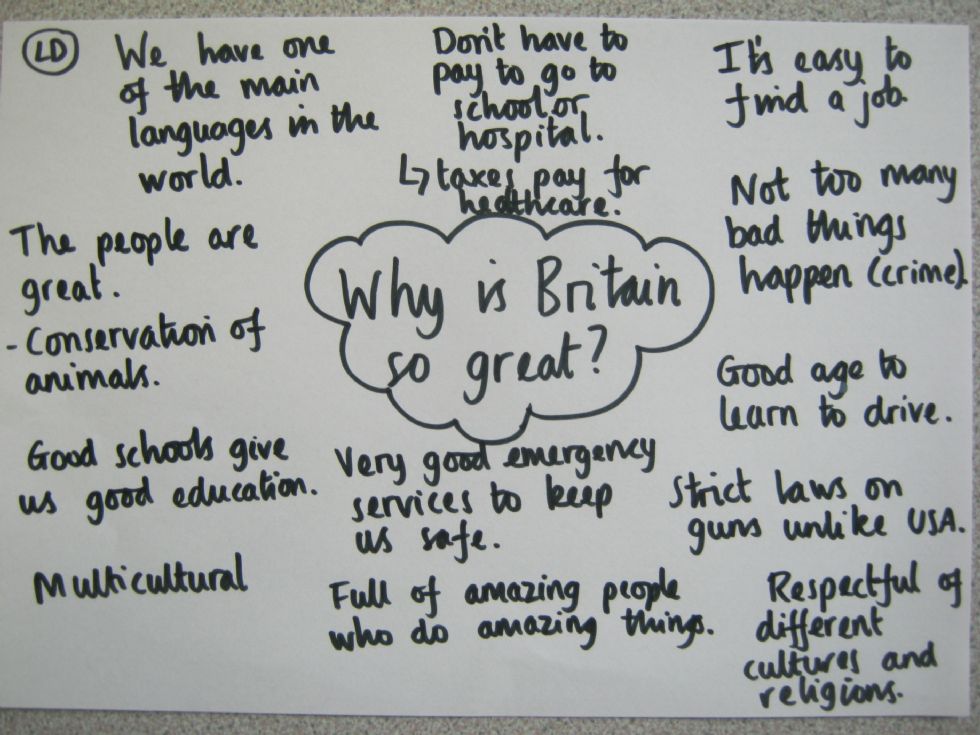 LD
We have one
of the main
languages in the
world.
Don't have to
pay to go to
school or
hospital.
↳ taxes pay for
healthcare.
It's easy to
find a job.
Not too many
bad things
happen (crime).
The people are
great.
- Conservation of
animals.
Why is Britain
so great?
Good age to
learn to drive.
Good schools give
us good education.
Very good emergency
services to keep
us safe.
Strict laws on
guns unlike USA.
Multicultural
Full of amazing people
who do amazing things.
Respectful of
different
cultures and
religions.